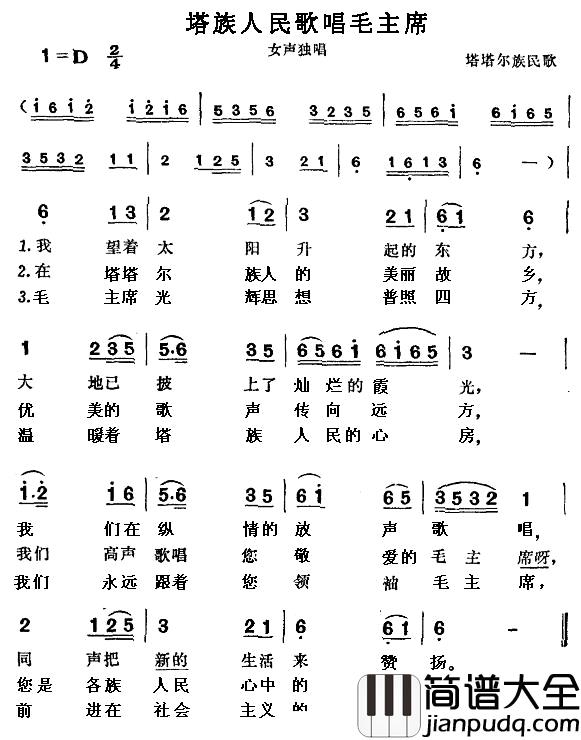 塔族人民歌唱毛主席
1=D 2/4
女声独唱
塔塔尔族民歌
(i6iż iżi6 | 5356 3235 | 656i 6i65 |
3532 11 | 2 125 | 3 21 | 6 1613 | 6 —)|
6 13 | 2 12 | 3 21 | 61 6 |
1.我 望着 太 阳 升 起的 东 方，
2.在 塔塔 尔 族人 的 美丽 故 乡，
3.毛 主席 光 辉思 想 普照 四 方，
1 235 | 5·6 35 | 656i 6i65 | 3 — |
大 地已 披 上了 灿 烂的 霞 光，
优 美的 歌 声 传 向 远 方，
温 暖着 塔 族 人 民的 心 房，
i·ż i6 | 5·6 35 | 6i 65 | 3532 1 |
我 们在 纵 情的 放 声 歌 唱，
我们 高声 歌唱 您 敬 爱的 毛 主 席呀，
我们 永远 跟着 您 领 袖 毛 主 席，
2 125 | 3 21 | 6 61 | 6 — |
同 声把 新的 生活 来 赞 扬。
您是 各族 人民 心中 的
前 进在 社会 主义 的
简谱大全
jianpudq.com